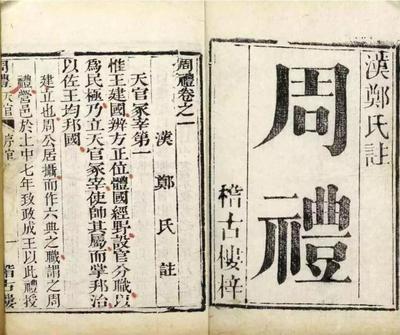 漢鄭氏註
周禮
稽古樓梓
周禮卷之一
漢鄭氏註
天官冢宰第一
惟王建國辨方正位體國經野設官分職以
為民極乃立天官冢宰使帥其屬而掌邦治
以佐王均邦國
建立也周公居攝而作六典之職謂之周
禮營邑於土中七年致政成王以此禮授
周禮
天官
序官
一
稽古樓